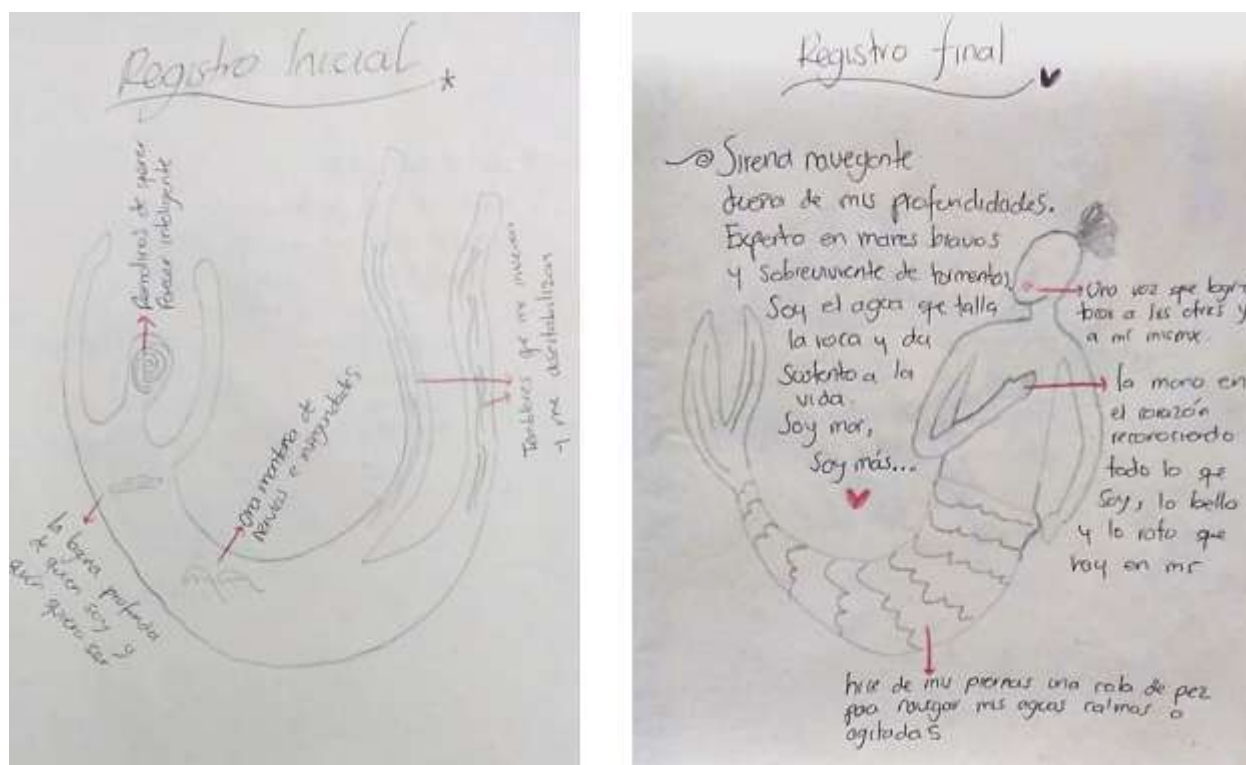 Registro Inicial
*
Remolinos de querer
Parecer inteligente
Una montaña de
nervios e inseguridades
Temblores que me invaden
y me desestabilizan
la profunda
de quien soy y
quiero ser
Registro final
Sirena navegante
dueña de mis profundidades.
Experta en mares bravos
y sobreviviente de tormentas.
Soy el agua que talla
la roca y da
Sustento a la
vida.
Soy mar,
Soy más...
Una voz que logra
a les otres y
a mi misme.
la mano en
el corazón
reconociendo
todo lo que
Soy, lo bello
y lo roto que
hay en mi
hice de mis piernas una cola de pez
para navegar mis aguas calmas o
agitadas